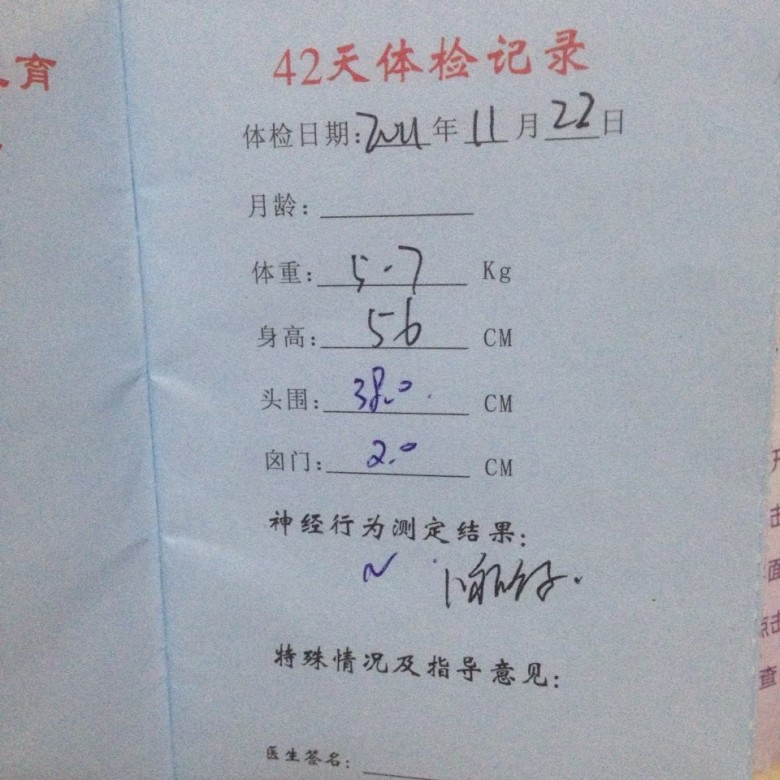 育
42天体检记录
体检日期:2011年11月22日
月龄:
体重:5.7 Kg
身高:56 CM
头围:38.0 CM
囟门:2.0 CM
神经行为测定结果:
~
特殊情况及指导意见:
医生签名:
面
击
查